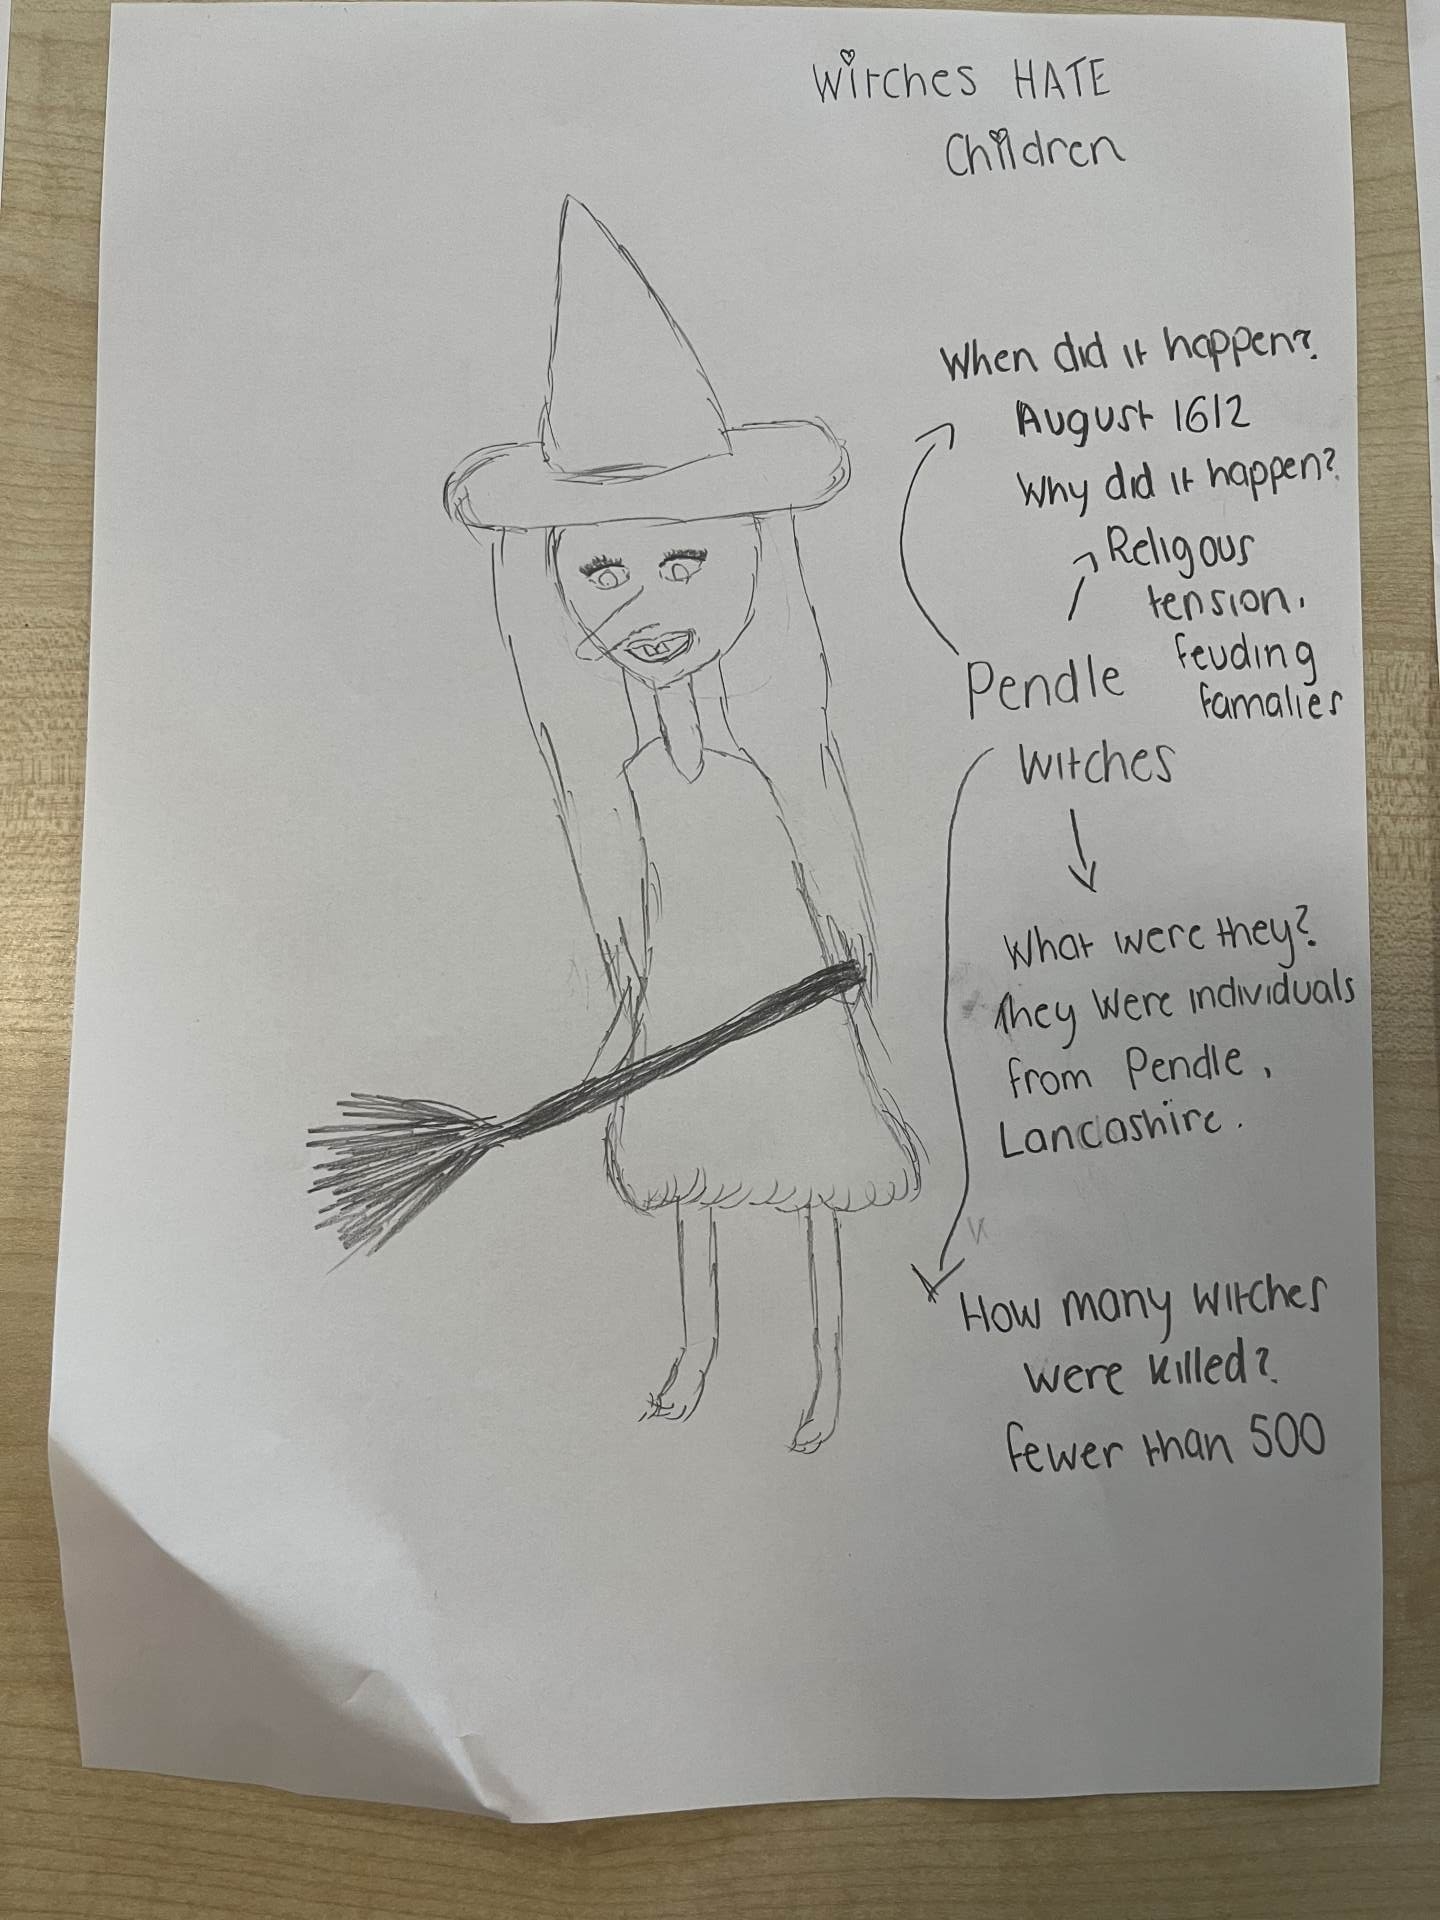 Witches HATE
Children
When did it happen?
August 1612
Why did it happen?
Religous
tension.
feuding
famalies
Pendle
witches
What were they?
They were individuals
from Pendle,
Lancashire.
How many witches
were killed?
fewer than 500